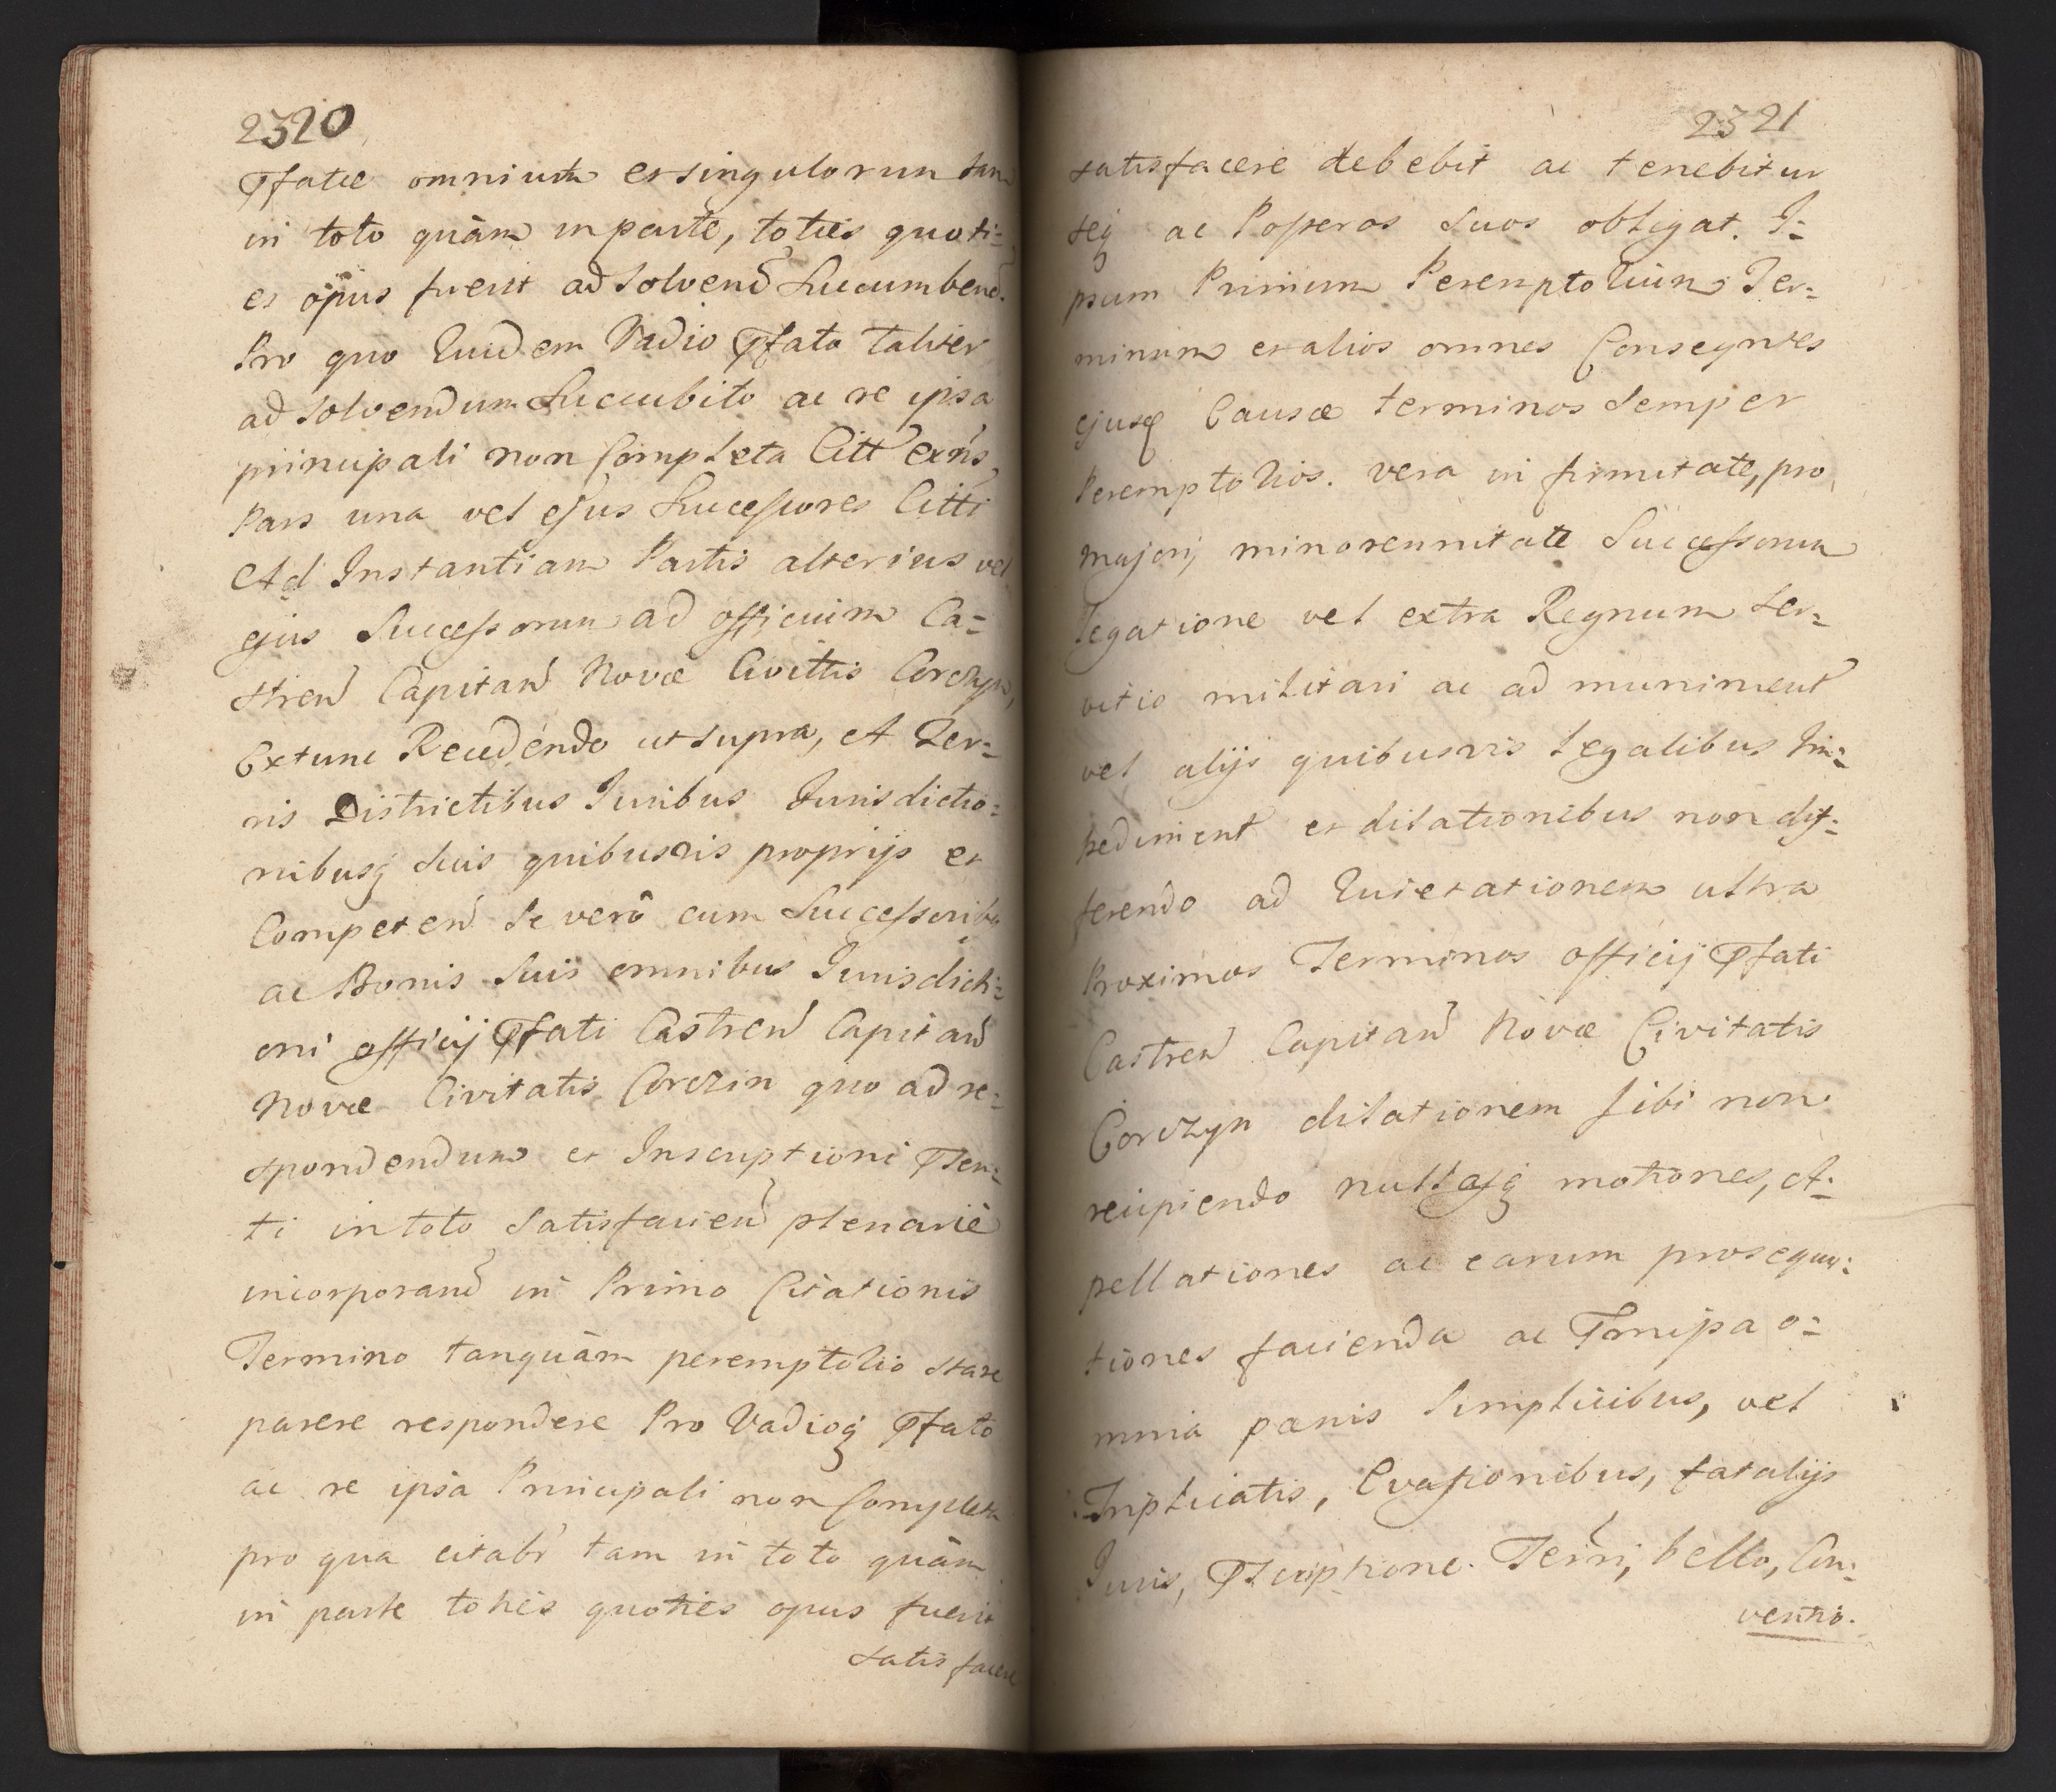 2320
Pfatæ omnium et singulorum tam
in toto quàm in parte, toties quoti=
es opus fuerit ad solvend Succumbend.
Pro quo Quidem Vadio Pfato taliter
ad solvendum Succubito ac re ipsa
principali non Completa Citt exns
Pars una vel ejus Successores Citti
Ad Instantiam Partis alterius vel
ejus Successorum ad officium Ca=
stren Capitan Novæ Civittis Corczyn,
Extunc Recedendo ut supra, A Ter=
ris Districtibus Iuribus Iurisdictio=
nibusq suis quibusvis proprijs et
Competen Se verò cum Successoribus
ac Bonis Suis omnibus Iurisdicti=
oni officij Pfati Castren Capitan
Novæ Civitatis Corczin quo ad re=
spondendum et Inscriptioni Psen=
ti in toto Satisfacien plenariè
incorporand in Primo Citationis
Termino tanquàm peremptorio stare
parere respondere Pro Vadioq Pfato
ac re ipsa Principali non Completa
pro qua citabr tam in toto quàm
in parte toties quoties opus fuerit
satisfacere
2321
satisfacere debebit ac tenebitur
seq ac Posteros Suos obligat. I=
psum Primum Peremptorium Ter=
minum et alios omnes Conseqntes
ejusq Causæ terminos Semper
Peremptorios. vera in firmitate, pro
majori, minorennitate Successorum
Legatione vel extra Regnum ser=
vitio militari ac ad muniment
vel alijs quibusvis Legalibus Im=
pediment et dilationibus non dif=
ferendo ad Quietationem ultra
Proximos Terminos officij Pfati
Castren Capitan Novæ Civitatis
Corczyn dilationem sibi non
recipiendo nullasq motiones, A=
pellationes ac earum prosequu=
tiones facienda ac Pmissa o=
mnia pœnis Simplicibus, vel
Triplicatis, Evasionibus, fatalijs
Iuris, Pscriptione. Terri, bello, Con=
ventio.